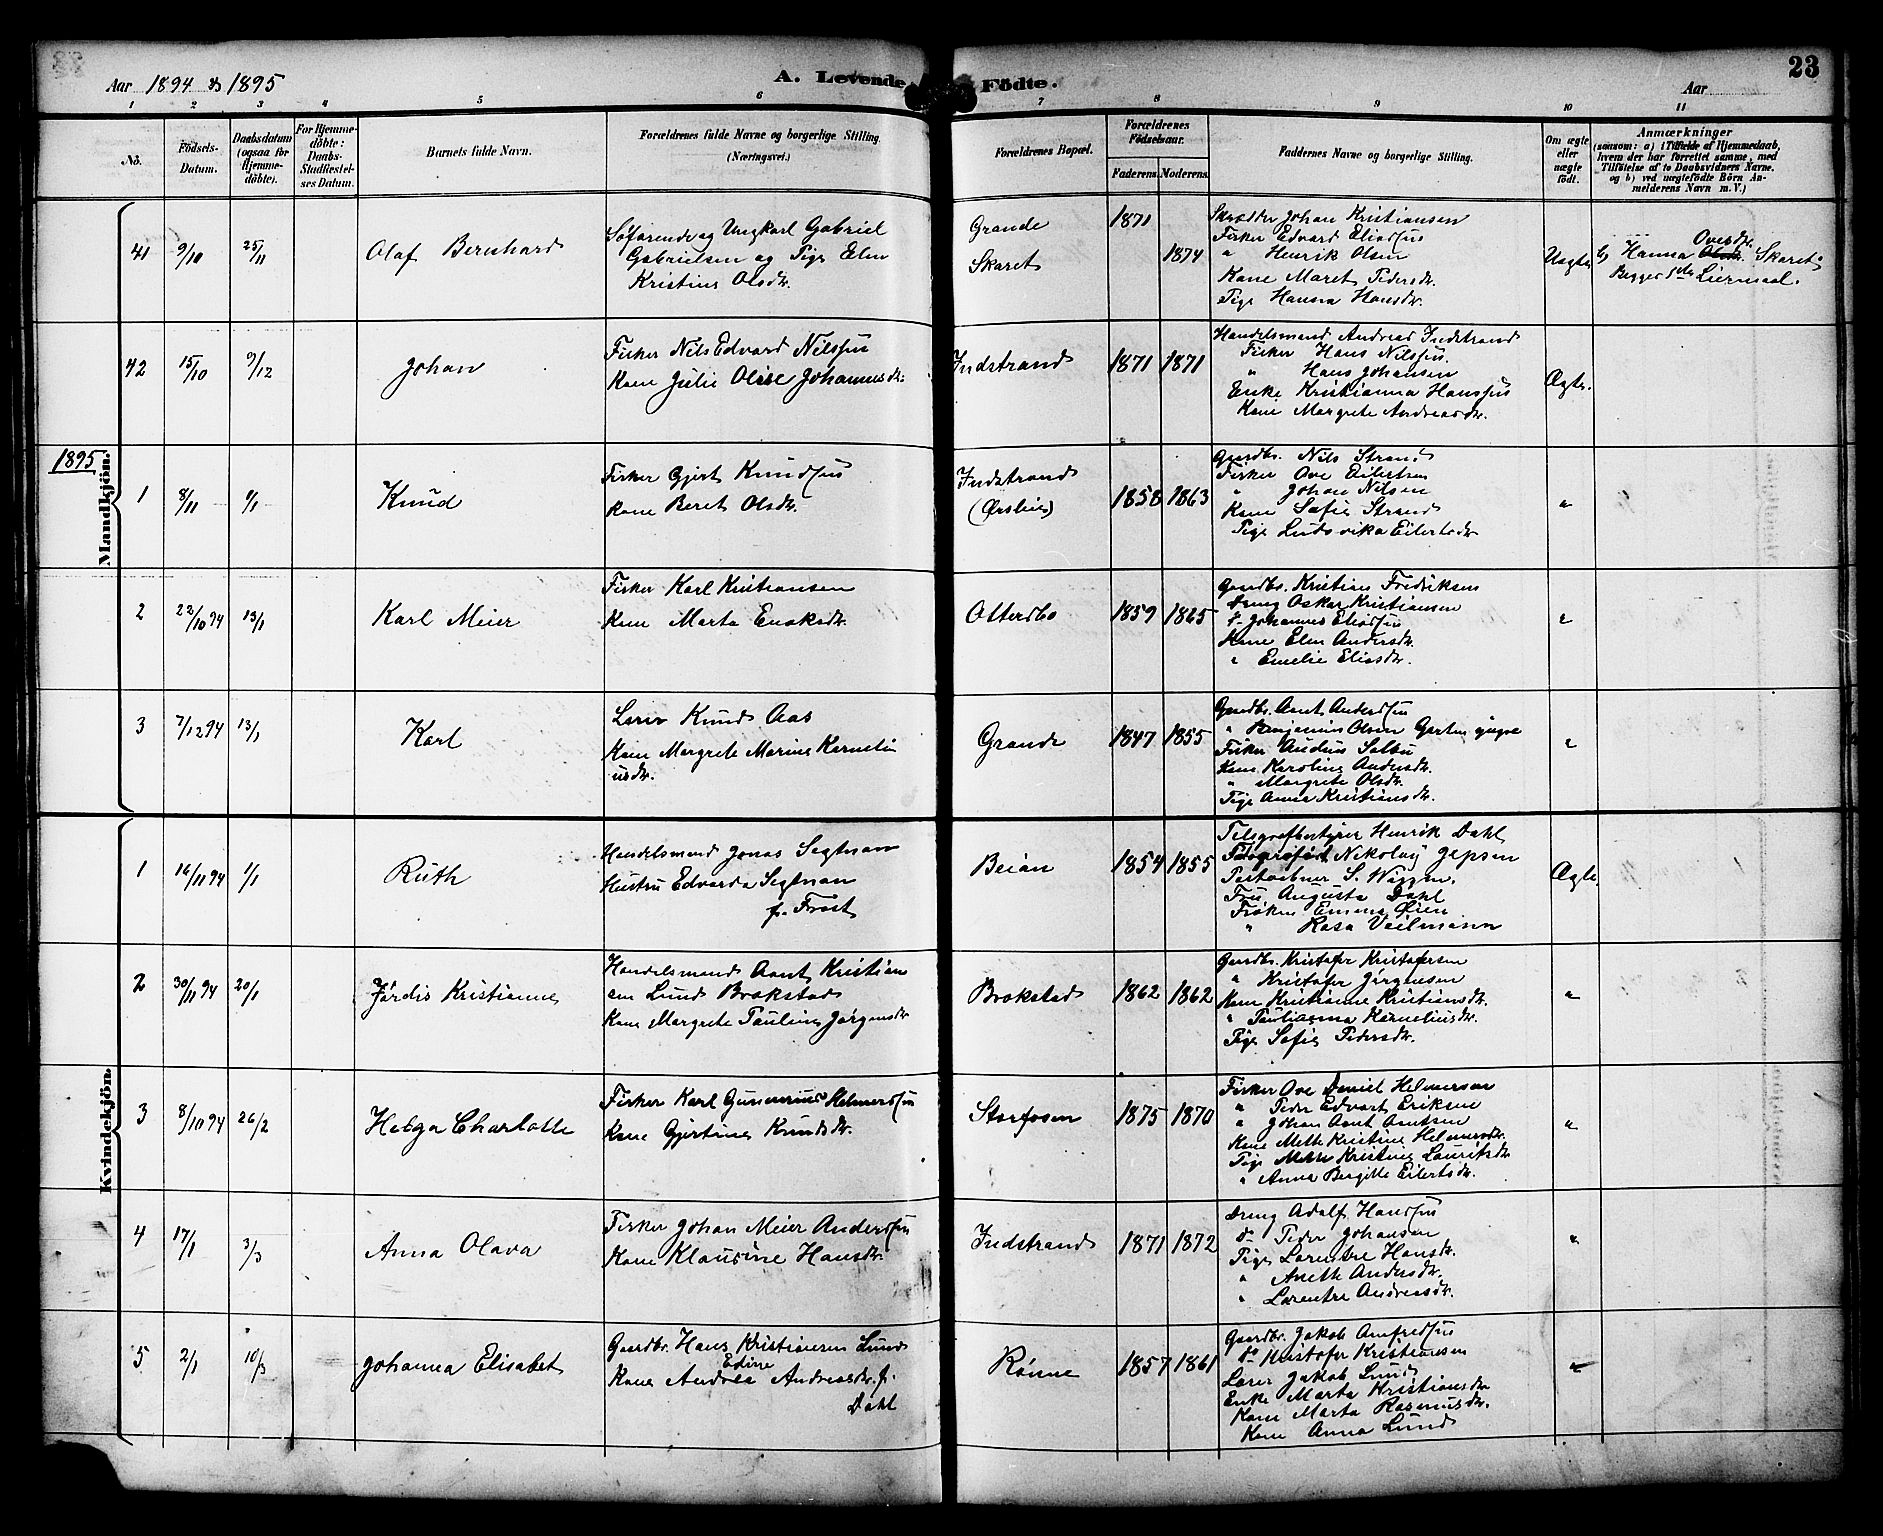 Aar 1894 & 1895
A. Levende Födte.
Aar
23
1 2 3 4 5 6 7 8 9 10 11
No.
Födsels-
Datum.
Daabsdatum
(ogsaa for
Hjemme-
döbte).
For Hjemme-
döbte:
Daabs-
Stadfæstel-
ses Datum.
Barnets fulde Navn.
Forældrenes fulde Navne og borgerlige Stilling.
(Næringsvei.)
Forældrenes Bopæl.
Forældrenes
Födselsaar.
Faderens. Moderens.
Faddernes Navne og borgerlige Stilling.
Om ægte
eller
uægte
født.
Anmærkninger
(saasom: a) i Tilfælde af Hjemmedaab,
hvem der har forrettet samme, med
Tilföielse af to Daabsvidners Navne,
og b) ved uægtefödte Börn An-
melderens Navn m. V.)
Mandkjön.
41 9/10 25/11 Olaf Bernhard
Søfarende og Ungkarl Gabriel
Gabrielsen og Pige Elen
Kristine Olsdtr.
Grande
Skaret
1871
1874
Skrædder Johan Kristiansen
Fisker Edvard Eliassen
" Henrik Olsen
Kone Maret Pedersdtr.
Pige Hanna Hansdtr.
Uægte
b) Hanna Ovesdtr. Skaret.
Begges 1ste Leiermaal.
42 15/10 9/12 Johan
Fisker Nils Edvard Nilssen
Kone Julie Olise Johannesdtr.
Indstrand 1871 1871
Handelsmand Andreas Indstrand
Fisker Hans Nilssen
" Hans Johansen
Enke Kristianna Hanssen
Kone Margrete Andreasdtr.
Ægte.
1895
1 8/11 1/1 Knud
Fisker Gjert Knudsen
Kone Beret Olsdtr.
Indstrand
1858 1863
Gaardbr. Nils Strand
Fisker Ove Eilertsen
" Johan Nilsen
Kone Sofie Strand
Pige Ludovika Eilertsdtr
"
2 22/10 94 13/1 Karl Meier
Fisker Karl Kristiansen
Kone Marta Enoksdtr.
Ottersbo 1859 1865
Gaardbr. Kristian Fredriksen
Dreng Oskar Kristiansen
d- Johannes Eliassen
Kone Elen Andersdtr.
" Emelie Eliasdtr.
"
3 7/12 94 13/1 Karl
Lærer Knud Aas
Kone Margrete Marine Korneli
usdtr.
Grande 1847 1855
Gaardbr. Arnt Anderssen
" Benjamin Olsen
Fisker
Kone Karoline Andersdtr.
" Margrete Olsdtr.
Pige Anna Kristiansdtr.
"
Kvindekjön.
1 16/11 94 1/1 Ruth
Handelsmand Jonas Segtnan
Hustru Edvarda Segtnan
f. Frost
Beian 1854 1855
Telegrafbestyrer Henrik Dahl
Nikolay Jepsen
S. Wiggen.
Fru Augusta Dahl
Frøken Emma Øien
" Rosa Veilmann
Ægte.
2 30/11 94 20/1 Jørdis Kristianne
Handelsmand Arnt Kristian
sen Lund Brækstad
Kone Margrete Pauline Jørgensdtr
Brækstad 1862 1862
Gaardbr. Kristofer Kristofersen
" Kristofer Jørgensen
Kone Kristianne Kristiansdtr.
" Paulianna Korneliusdtr.
Pige Sofie Pedersdtr.
"
3 8/10 94 26/2 Helga Charlotte
Fisker Karl Gunerius Helmersen
Kone Gjertine Knudsdtr.
Storfosen 1875 1870
Fisker Ove Daniel Helmersen
" Peder Edvart Eriksen
" Johan Arnt Arntsen
Kone Meth Kristine Helmersdtr.
Pige Meth Kristine Lauritsdtr
" Anna Bergitte Eilertsdtr.
"
4 17/1 3/3 Anna Olava
Fisker Johan Meier Anderssen
Kone Klausine Hansdtr.
Indstrand 1871 1872
Dreng Adolf Hanssen
d- Peder Johansen
Pige Lorentse Hansdtr.
" Aneth Andersdtr.
" Lorentse Andreasdtr.
"
5 2/1 10/3 Johanna Elisabet
Gaardbr. Hans Kristiansen Lund
Kone Andrea Edine Andreasdtr. f.
Dahl
Rønne 1857 1861
Gaardbr. Jakob Amfredsen
do Kristofer Kristiansen
Lærer Jakob Lund
Enke Marta Kristiansdtr
Kone Marta Rasmusdtr.
Kone Anna Lund
"